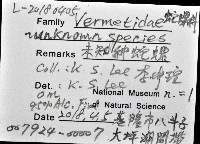 L-20180405
Family Vermetidae 蛇螺科
unknown species
Remarks 未知種蛇螺
Coll.: K. S. Lee 李坤瑄
Det. K. S. Lee
National Museum n.=1
95% Alc. of Natural Science
Date 2018.4.5 基隆市八斗子
007924-00007 大坪潮間帶